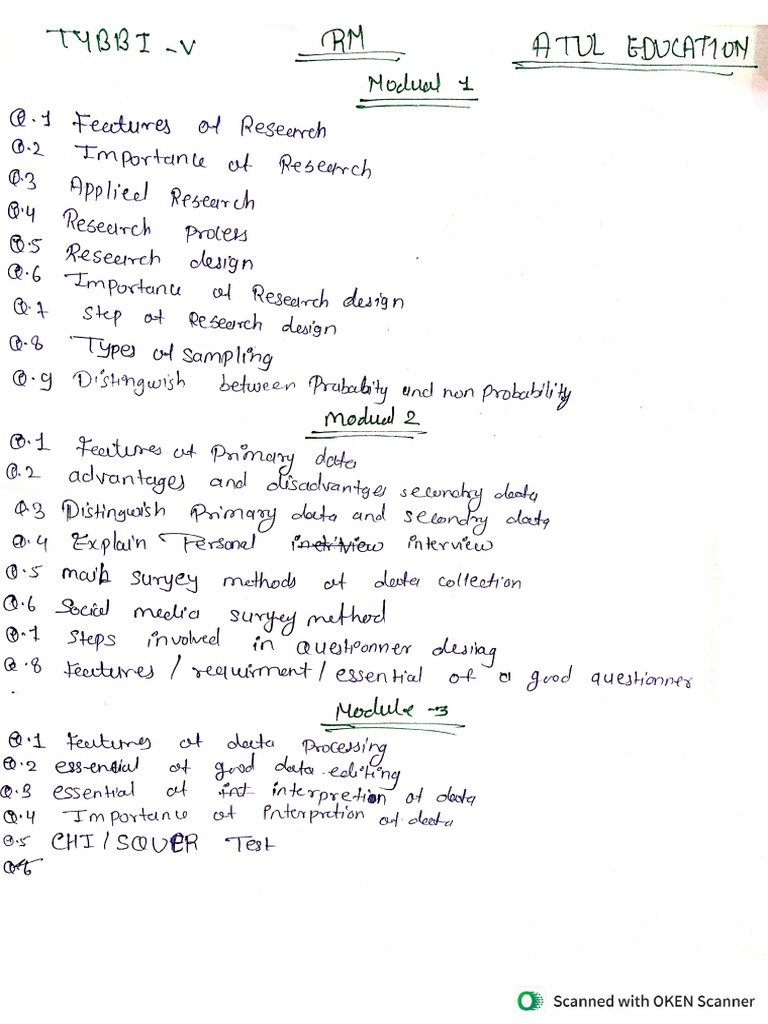 TYBBI -V RM ATUL EDUCATION
Modual 1
Q.1 Features of Research
Q.2 Importance of Research
Q.3 Applied Research
Q.4 Research Process
Q.5 Research design
Q.6 Importance of Research design
Q.7 Step of Research design
Q.8 Types of Sampling
Q.9 Distingwish between Probability and non Probability
Modual 2
Q.1 Features of Primary data
Q.2 advantages and disadvantges secondry data
Q.3 Distingwish Primary data and secondry data
Q.4 Explain Personal interview
Q.5 mail survey methods of data collection
Q.6 Social media survey method
Q.7 Steps involved in questionner
Q.8 Features / requirment / essential of a good questionner
Module -3
Q.1 Features of data Processing
Q.2 essential of good data editing
Q.3 essential of interpretion of data
Q.4 Importance of interpretion of data
Q.5 CHI / SQUER Test
Scanned with OKEN Scanner